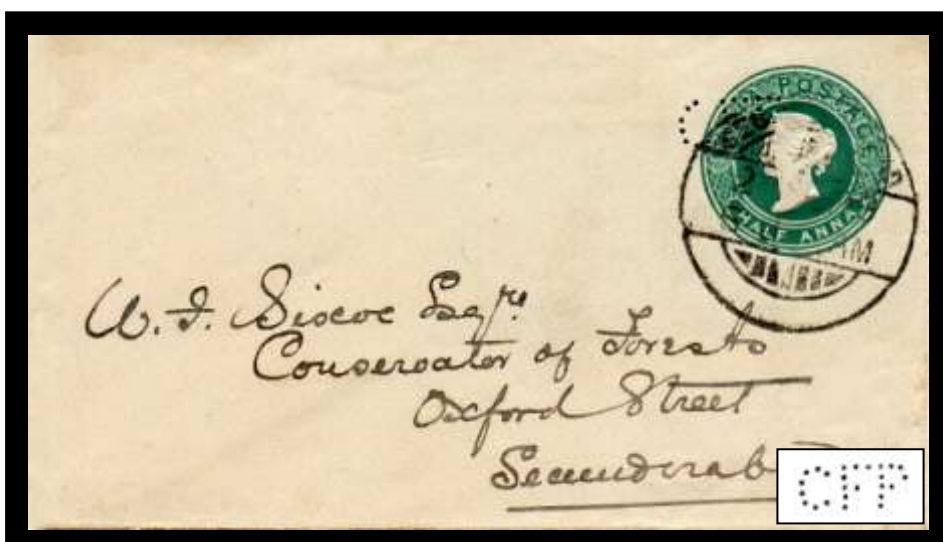 POSTAGE
HALF ANNA
AM
W. F. Biscoe Esqre.
Conservator of Forests
Oxford Street
Secunderab
CFP